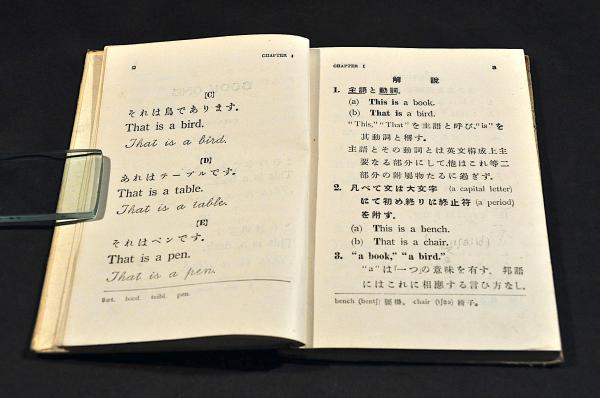 2
CHAPTER I
[C]
それは鳥であります。
That is a bird.
That is a bird.
[D]
あれはテーブルです。
That is a table.
That is a table.
[E]
それはペンです。
That is a pen.
That is a pen.
pen.
CHAPTER I
3
解說
1. 主語と動詞.
(a) This is a book.
(b) That is a bird.
"This," "That" を主語と呼び、"is" を
其動詞と稱す。
主語とその動詞とは英文構成上主
要なる部分にして、他はこれ等二
部分の附屬物たるに過ぎず。
2. 凡べて文は大文字 (a capital letter)
にて初め終りに終止符 (a period)
を附す。
(a) This is a bench.
(b) That is a chair.
3. "a book," "a bird."
"a" は「一つ」の意味を有す. 邦語
にはこれに相應する言ひ方なし.
bench 腰掛. chair 椅子.